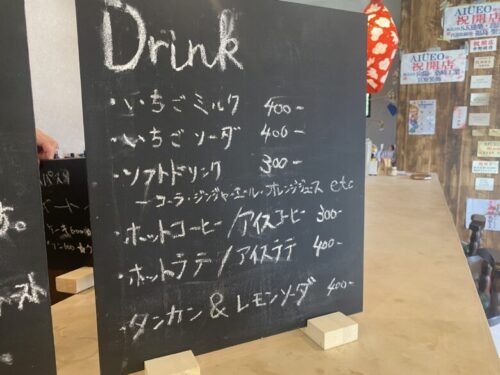 Drink
・いちごミルク 400-
・いちごソーダ 400-
・ソフトドリンク 300-
ーコーラ・ジンジャーエール・オレンジジュース etc
・ホットコーヒー/アイスコーヒー 300-
・ホットラテ/アイスラテ 400-
・タンカン&レモンソーダ 400-
AIUEO
祝開店
AIUEO
祝開店